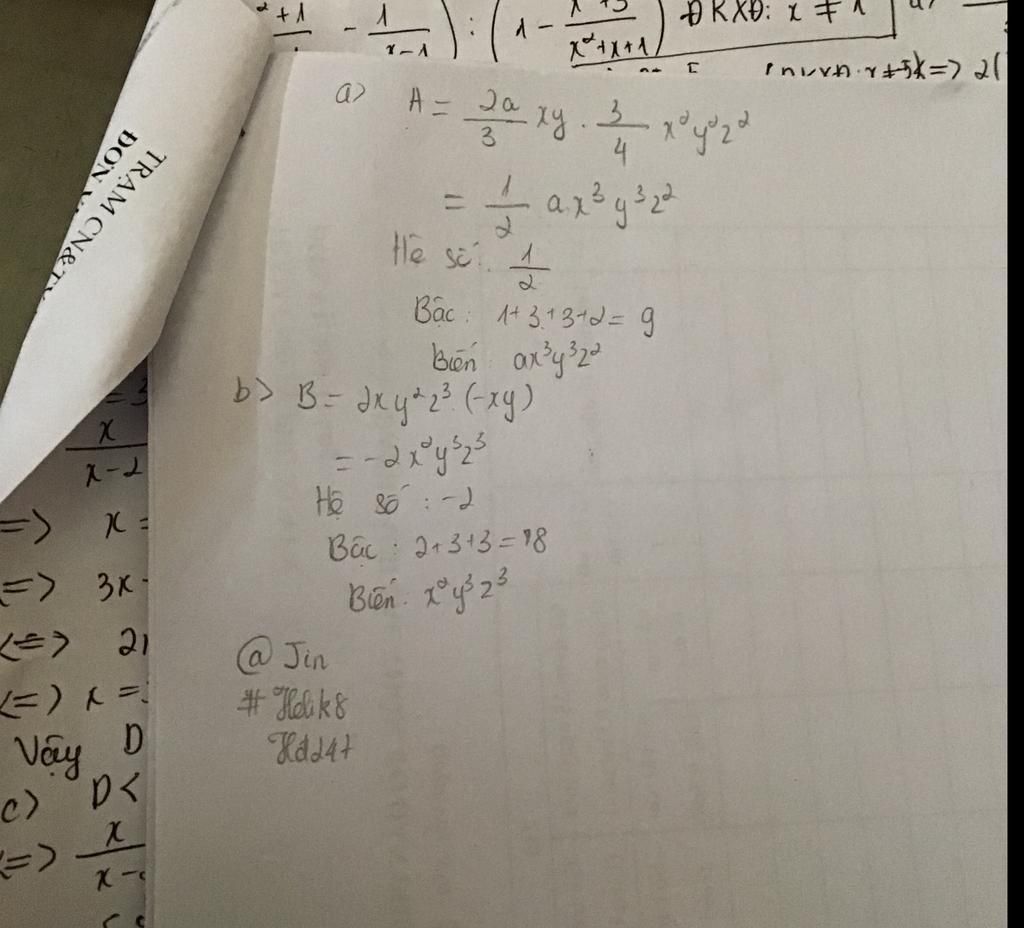 ²+1 / - 1/(x-1) ) : ( 1 - / x²+x+1 ) ĐKXĐ: x ≠ 1
=> 2(
TRẠM CN&TY
ĐƠN
a> A = 2a/3 xy . 3/4 x²y²z²
= 1/2 a.x³y³z²
Hê số: 1/2
Bậc: 1+3+3+2= 9
Biến: ax³y³z²
b> B = 2xy²z³.(-xy)
= -2x²y³z³
Hệ số: -2
Bậc: 2+3+3=8
Biến: x²y³z³
@ Jin
# Hdik8
Hd247
= 3
x/(x-2)
=> x =
=> 3x -
<=> 2
<=> x =
Vậy D
c) D<
<=> x/(x-